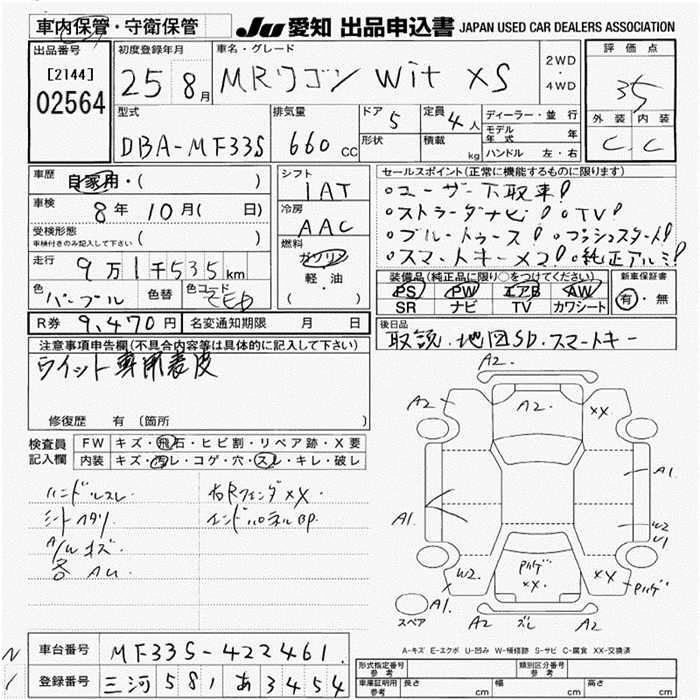 車内保管・守衛保管 JU 愛知 出品申込書 JAPAN USED CAR DEALERS ASSOCIATION
出品番号 [2144] 02564
初度登録年月 25年 8月
車名・グレード MRワゴン Wit XS
2WD・4WD
評価点 3.5
外装 C 内装 C
型式 DBA-MF33S
排気量 660cc
ドア 5 形状
定員 4人 積載 kg
ディーラー・並行
モデル年式 年
ハンドル 左・右
車歴 自家用・( )
車検 8年10月( 日)
受検形態 車検付きのみ記入して下さい ( )
走行 9万1千535km
色 パープル 色替 色コード ZED
シフト IAT
冷房 AAC
燃料 ガソリン 軽・油
セールスポイント(正常に機能するものに限ります)
・ユーザー下取車!
・ストラーダナビ! ・TV!
・ブルートゥース! ・プッシュスタート!
・スマートキーX2! ・純正アルミ!
装備品(純正品に限り○をつけてください)
PS PW エアB AW
SR ナビ TV カワシート
新車保証書 有・無
R券 9,470円 名変通知期限 月 日
後日品 取説・地図SD・スマートキー
注意事項申告欄(不具合内容等は具体的に記入して下さい)
ウィット専用表皮
修復歴 有 〔箇所 〕
検査員記入欄
FW キズ・飛石・ヒビ割・リペア跡・X要
内装 キズ・汚レ・コゲ・穴・スレ・キレ・破レ
ハンドルスレ 右RフェンダXX.
シートヘタリ エンドパネルBP.
A/Wキズ.
各AU.
A2
A2 A2. XX
A1. A1
W2 U1
W2 Rハゲ XX. XX Rハゲ
スペア A1. A2 ズレ A2
A-キズ E-エクボ U-凹み W-補修跡 S-サビ C-腐食 XX-交換済
車台番号 MF33S-422461.
登録番号 三河 581 あ 3454
形式指定番号 参考 類別区分番号 参考
車庫証明用 参考 長さ cm 幅 cm 高さ cm